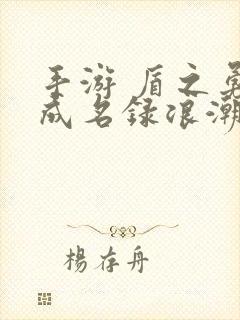 手游 盾之勇
成名録浪潮
楊存舟